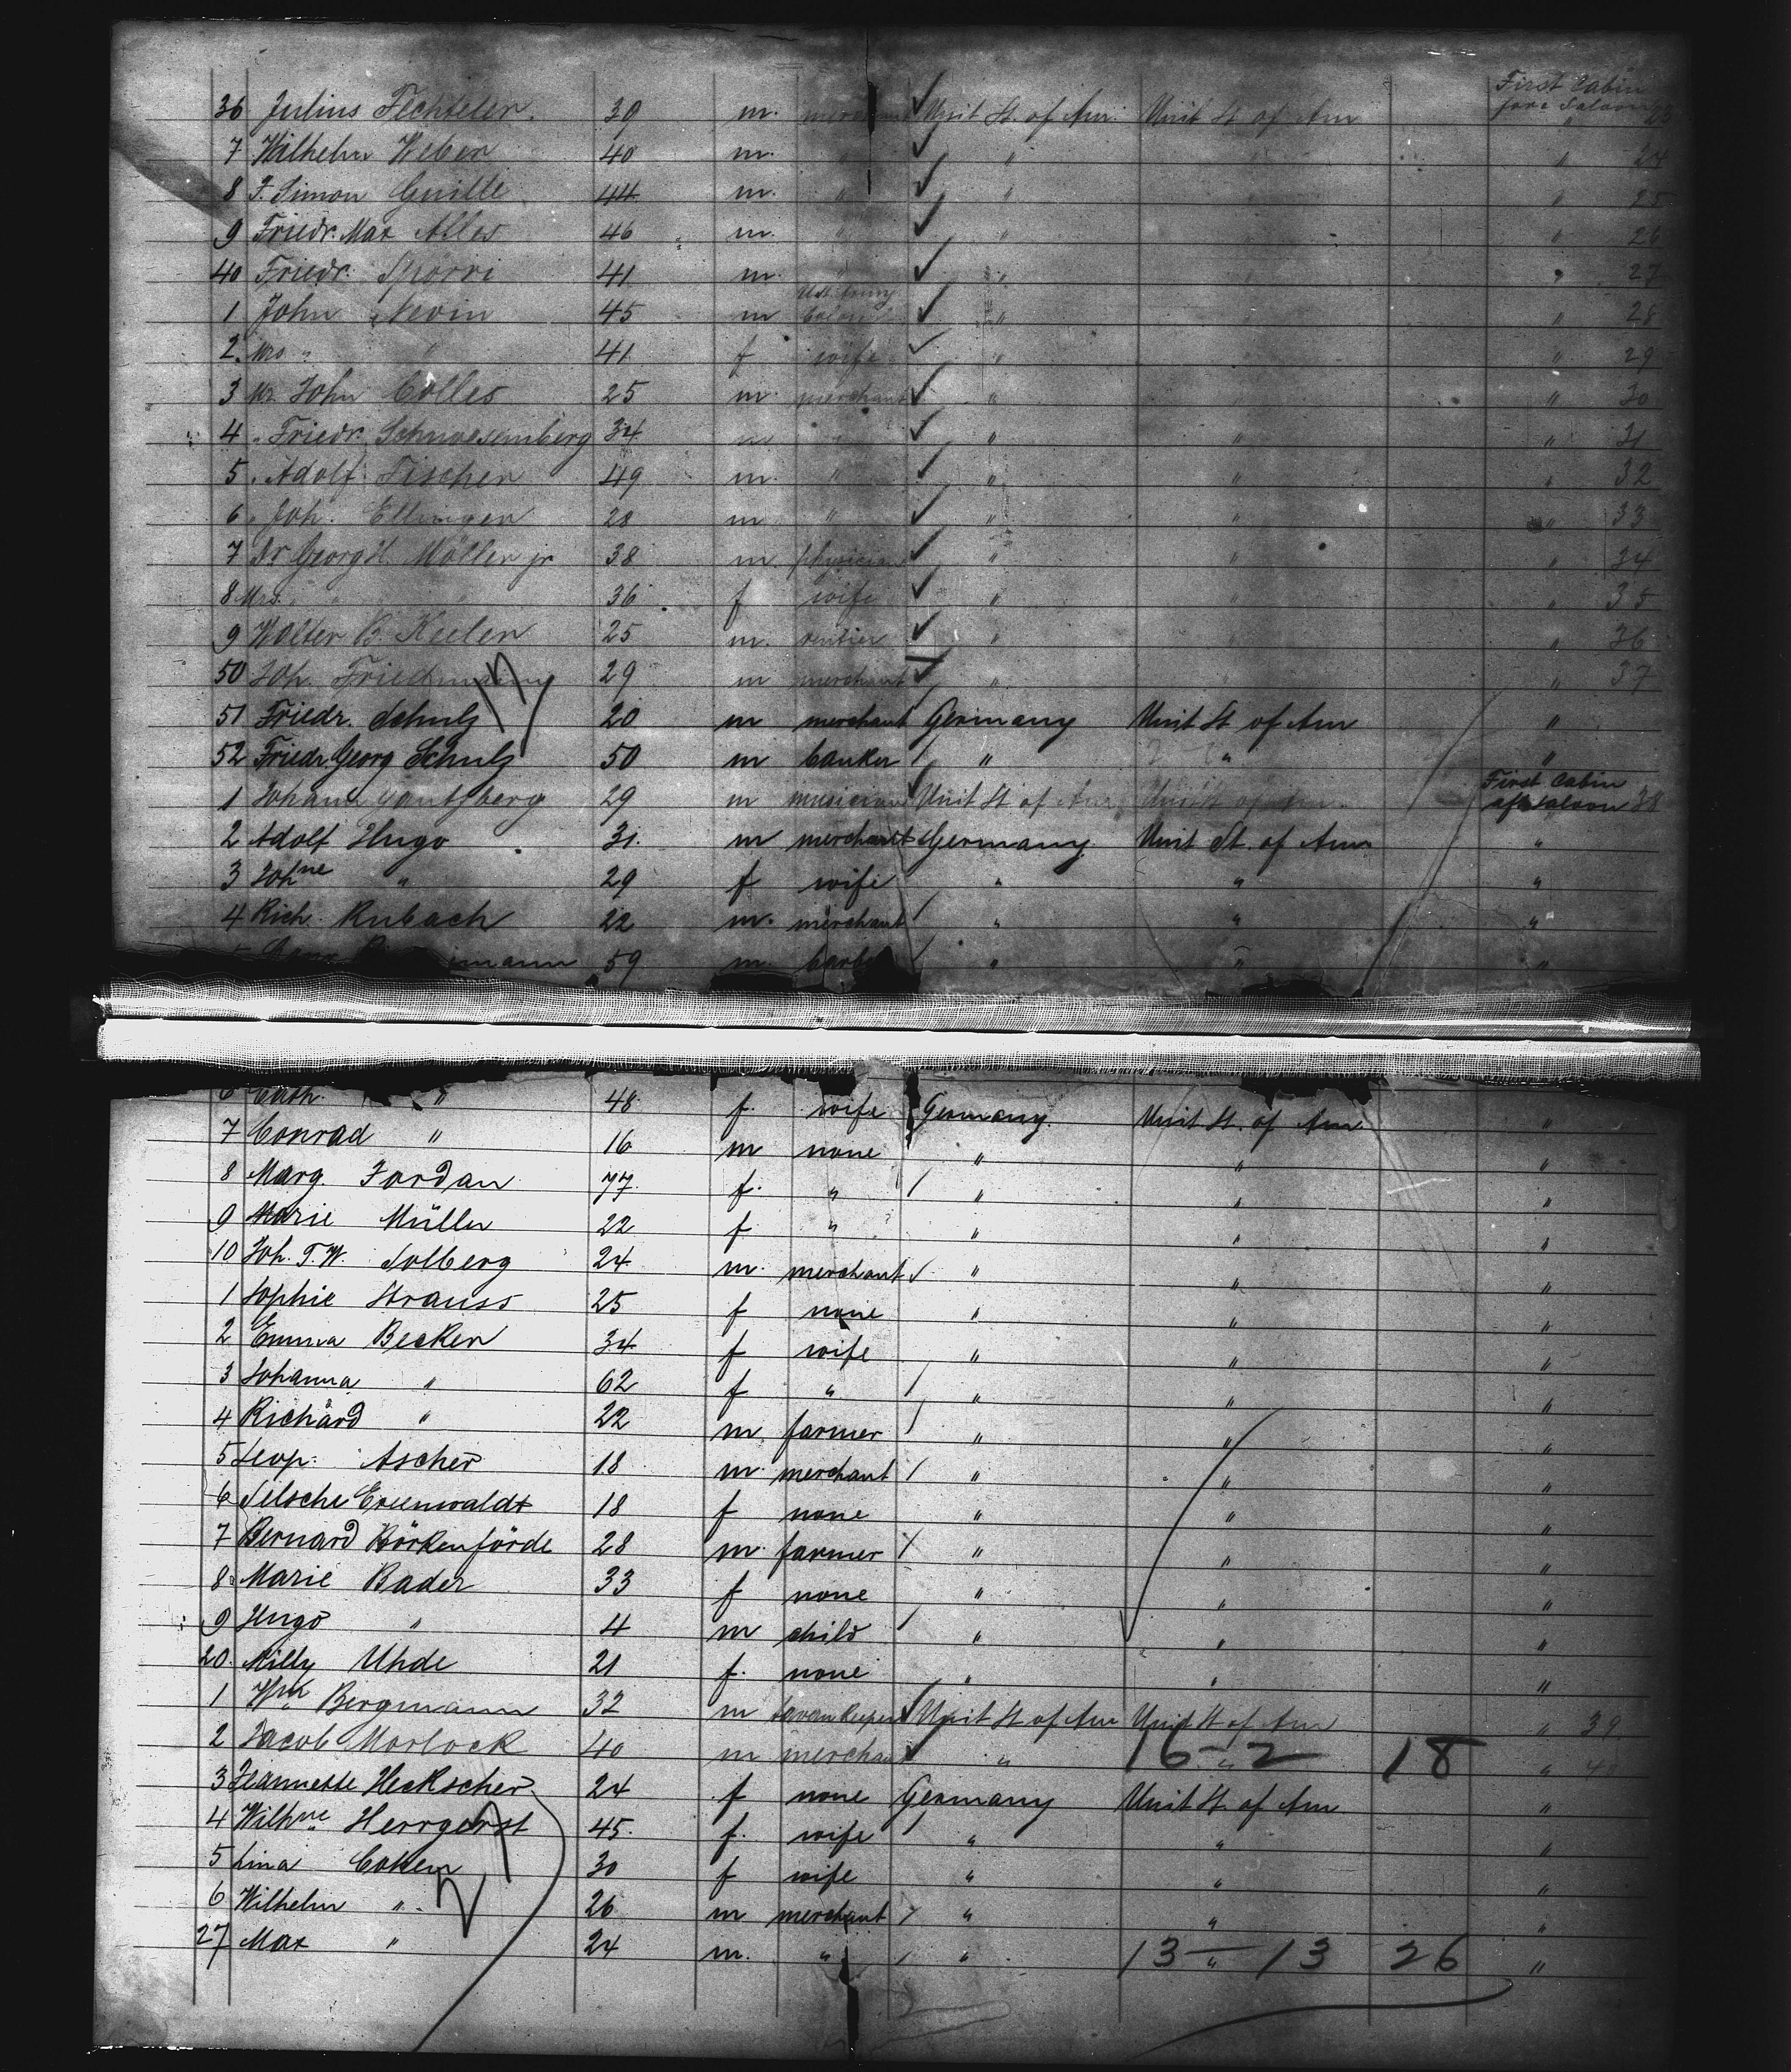 First Cabin
36 Julius Fechteler. 39 m. merchant Unit St. of Am. Unit St of Am fore Saloon 23
7 Wilhelm Weber 40 m. " " " " 24
8 F. Simon 44 m. " " " " 25
9 Friedr. Max Alles 46 m. " " " " 26
40 Friedr. Spörri 41 m. " " " " 27
1 John Nevin 45 m U.St. Army Colonel " " " 28
2. Mrs " " 41 f wife " " " 29
3 Mr. John Colles 25 m. merchant " " " 30
4 " Friedr. 34 m " " " " 31
5 " Adolf Fischer 49 m. " " " " 32
6 " Joh. Ellinger 28 m " " " " 33
7 Dr Georg H. Möller jr 38 m. physician " " " 34
8 Mrs. " " 36 f wife " " " 35
9 Walter B. Keeler 25 m. rentier " " " 36
50 Joh. Friedmann 29 m merchant " " " 37
51 Friedr. Schulz 20 m merchant Germany Unit St of Am "
52 Friedr. Georg Schulz 50 m banker " " "
First Cabin
1 Johann 29 m musician Unit St of Am Unit St of Am. aft Saloon 38
2 Adolf Hugo 31. m merchant Germany Unit St. of Am "
3 Joh ne " 29 f wife " " "
4 Rich. Rubach 22 m. merchant " " "
5 59 m. " " "
6 Cath. " 48 f. wife Germany. Unit. St. of Am "
7 Conrad " 16 m none " " "
8 Marg. Jordan 77. f. " " " "
9 Marie Müller 22 f. " " " "
10 Joh. F. W. Solberg 24 m. merchant " " "
1 Sophie Strauss 25 f none " " "
2 Emma Becker 34 f wife " " "
3 Johanna " 62 f " " " "
4 Richard " 22 m. farmer " " "
5 Leop. Ascher 18 m. merchant " " "
6 18 f none " " "
7 Bernard Börkenförde 28 m. farmer " " "
8 Marie Bader 33 f none " " "
9 Hugo " 4 m child " " "
20. Milly Uhde 21 f. none " " "
1 Wm Bergmann 32 m Unit St of Am Unit St of Am " 39
2 Jacob Morlock 40 m merchant " 16 - 2 18 " 40
3 Jeannette Heckscher 24 f none Germany Unit St. of Am "
4 Wilh ne Herrgerst 45. f. wife " " "
5 Lina Cohen 30 f wife " " "
6 Wilhelm " 26 m merchant " " "
27 Max " 24 m. " " 13 - 13 26 "